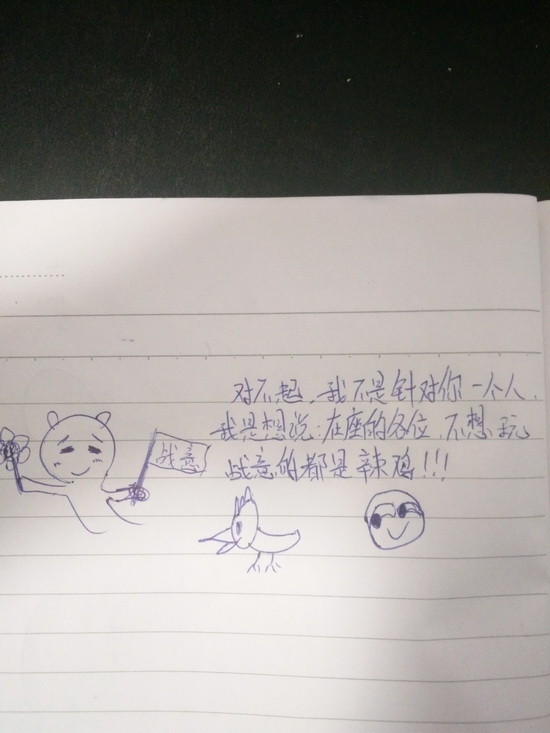 对不起,我不是针对你一个人,
我是想说:在座的各位,不想玩
战意的都是辣鸡!!!
战意